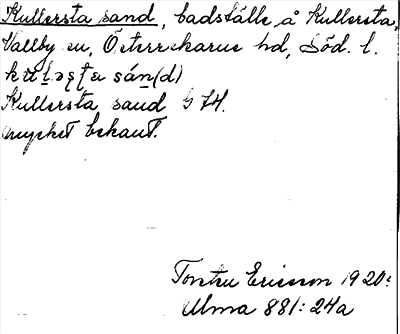 Kullersta sand, badställe å Kullersta,
Vallby sn, Österrekarne hd, Söd. l.
sán(d)
Kullersta sand G 74.
mycket bekant.
Torsten Ericsson 1920:
Ulma 881:24a